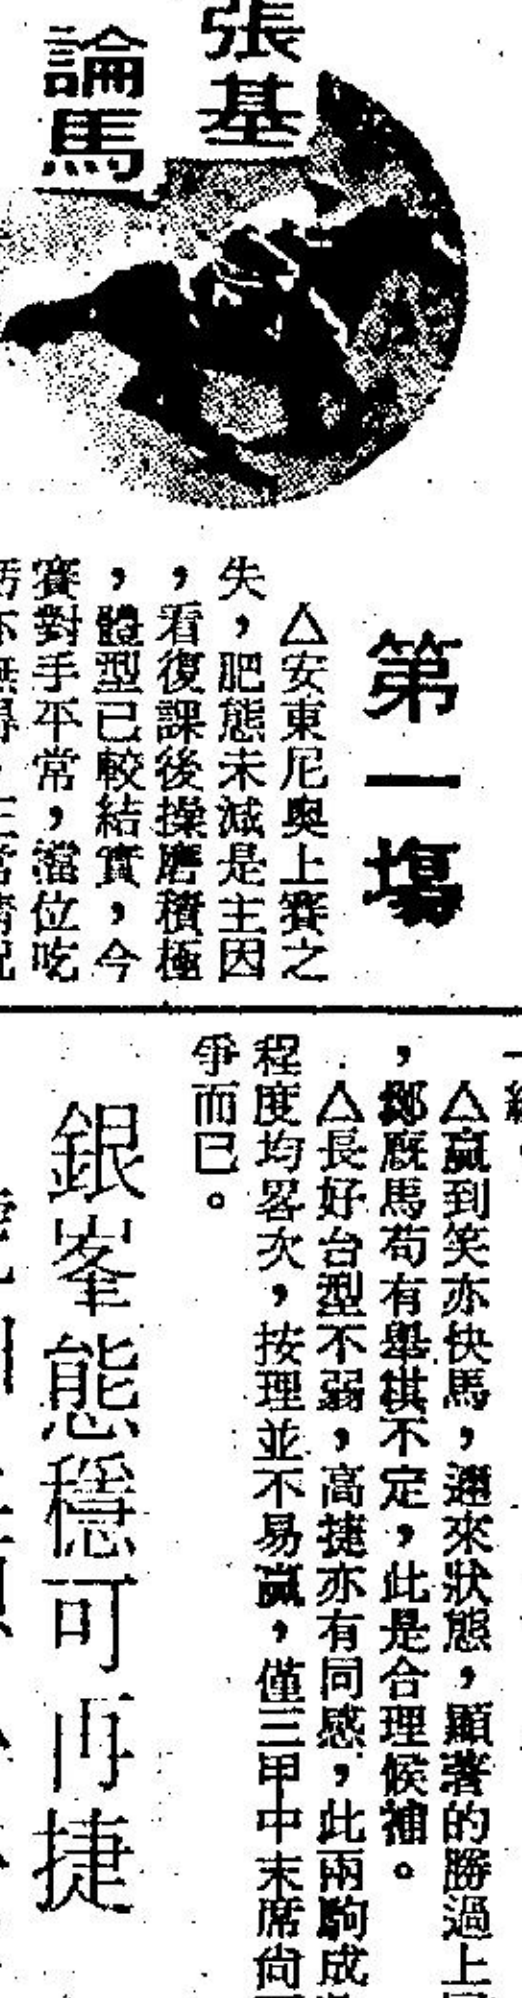 張基
論馬
第一場
△安東尼奧上賽之
失，肥態未減是主因
，看復課後操磨積極
，體型已較結實，今
賽對手平常，檔位吃
△贏到笑亦快馬，邇來狀態，顯著的勝過上
，鄭厩馬苟有舉棋不定，此是合理候補。
△長好台型不弱，高捷亦有同感，此兩駒成
程度均畧次，按理並不易贏，僅三甲中末席尙
爭而已。
銀峯態穩可再捷